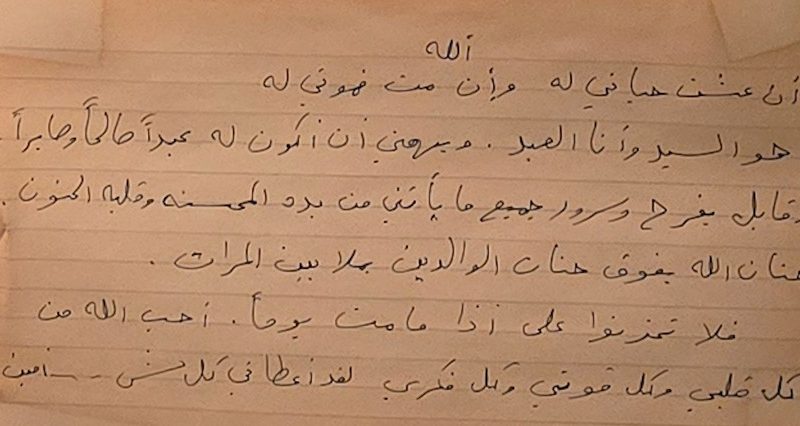 الله
أن عشت حياتي له وإن مت فموتي له
هو السيد وأنا العبد . ويهمني أن أكون له عبداً صالحاً وصابراً .
وقابل بفرح وسرور جميع ما يأتني من يده المحسنه وقلبه الحنون .
حنان الله يفوق حنان الوالدين بملايين المرات .
فلا تحزنوا على إذا ما مت يوماً . أحب الله من
كل قلبي وكل قوتي وكل فكري لقد أعطاني كل شي -- امين